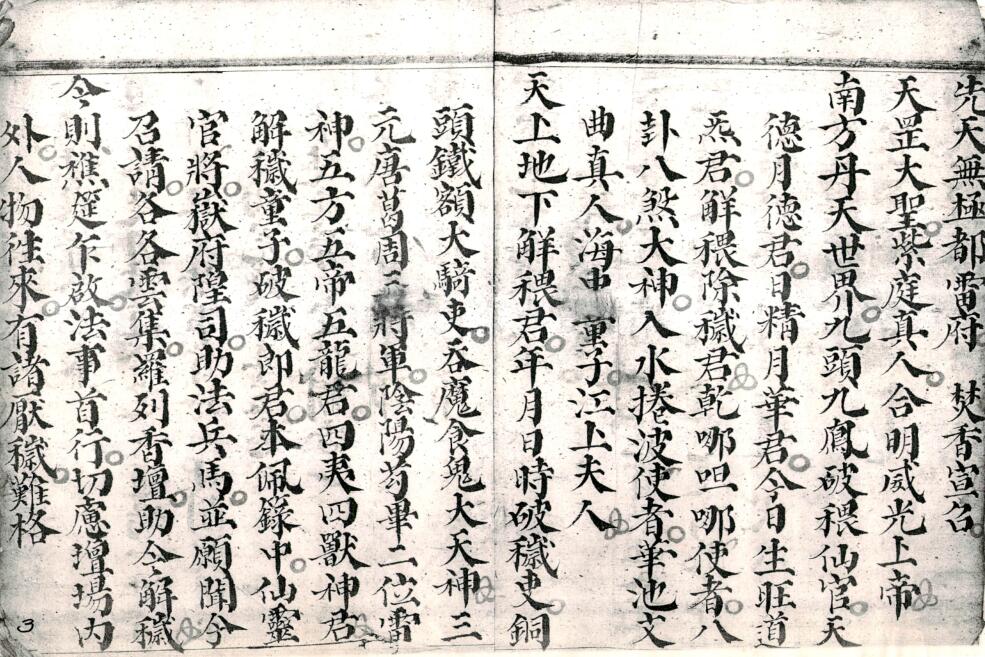 先天無極都雷府 焚香宣召
天罡大聖紫庭真人合明威光上帝
南方丹天世界九頭九鳳破穢仙官天
德月德君日精月華君今日生旺道
炁君解穢除穢君乾哪呾哪使者八
卦八煞大神入水捲波使者華池文
曲真人海中 童子江上夫人
天上地下解穢君年月日時破穢吏銅
頭鐵額大騎吏吞魔食鬼大天神三
元唐葛周三將軍陰陽芶畢二位雷
神五方五帝五龍君四夷四獸神君
解穢童子破穢郎君本佩籙中仙靈
官將嶽府隍司助法兵馬並願聞今
召請各各雲集羅列香壇助今解穢
今則樵筵乍啟法事首行切慮壇場內
外人物往來有諸厭穢難格
3